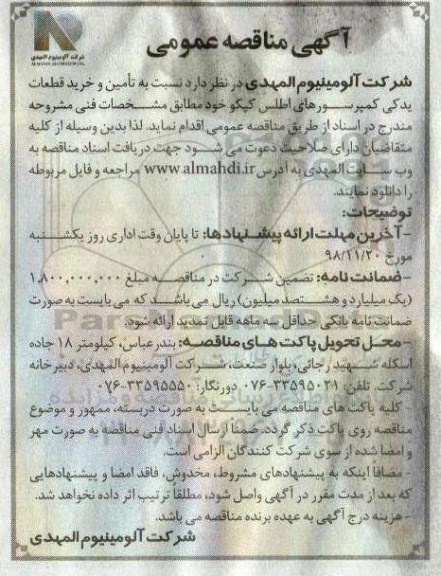 شرکت آلومینیوم المهدی
آگهی مناقصه عمومی
شرکت آلومینیوم المهدی در نظر دارد نسبت به تأمین و خرید قطعات
یدکی کمپرسورهای اطلس کپکو خود مطابق مشخصات فنی مشروحه
مندرج در اسناد از طریق مناقصه عمومی اقدام نماید. لذا بدین وسیله از کلیه
متقاضیان دارای صلاحیت دعوت می شود جهت دریافت اسناد مناقصه به
وب سایت المهدی به آدرس www.almahdi.ir مراجعه و فایل مربوطه
را دانلود نمایند.
توضیحات:
- آخرین مهلت ارائه پیشنهادها: تا پایان وقت اداری روز یکشنبه
مورخ ۹۸/۱۱/۲۰
- ضمانت نامه: تضمین شرکت در مناقصه مبلغ ۱,۸۰۰,۰۰۰,۰۰۰
(یک میلیارد و هشتصد میلیون) ریال می باشد که می بایست به صورت
ضمانت نامه بانکی حداقل سه ماهه قابل تمدید ارائه شود.
- محل تحویل پاکت های مناقصه: بندرعباس، کیلومتر ۱۸ جاده
اسکله شهید رجائی، بلوار صنعت، شرکت آلومینیوم المهدی، دبیرخانه
شرکت. تلفن: ۳۳۵۹۵۰۳۱-۰۷۶ دورنگار: ۳۳۵۹۵۵۵۰-۰۷۶
- کلیه پاکت های مناقصه می بایست به صورت دربسته، ممهور و موضوع
مناقصه روی پاکت ذکر گردد. ضمناً ارسال اسناد فنی مناقصه به صورت مهر
و امضا شده از سوی شرکت کنندگان الزامی است.
- مضافاً اینکه به پیشنهادهای مشروط، مخدوش، فاقد امضا و پیشنهادهایی
که بعد از مدت مقرر در آگهی واصل شود، مطلقاً ترتیب اثر داده نخواهد شد.
- هزینه درج آگهی به عهده برنده مناقصه می باشد.
شرکت آلومینیوم المهدی